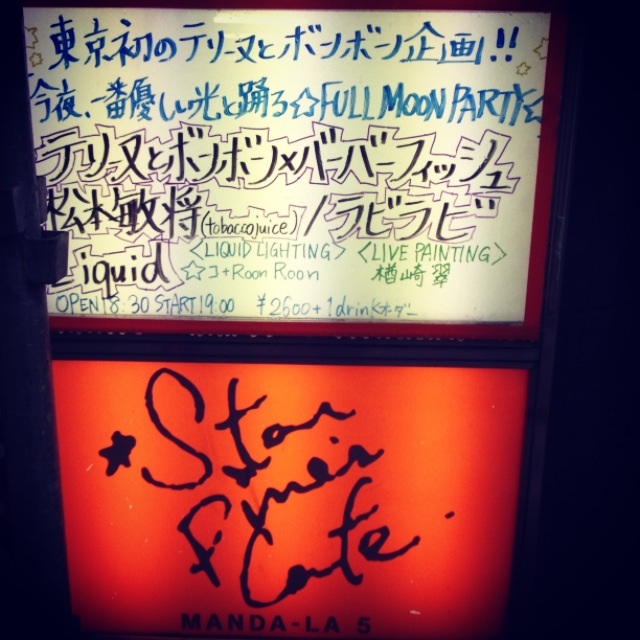 東京初のテリーヌとボンボン企画!!
今夜、一番優しい光と踊る☆FULL MOON PARTY☆
テリーヌとボンボン×バーバーフィッシュ
松本敏将(tobaccojuice)/ラビラビ
Liquid <LIQUID LIGHTING> <LIVE PAINTING>
☆コ+Roon Roon 楢崎翠
OPEN18:30 START19:00 ¥2600+1drinkオーダー
★Star
Pine's
Cafe.
MANDA-LA 5